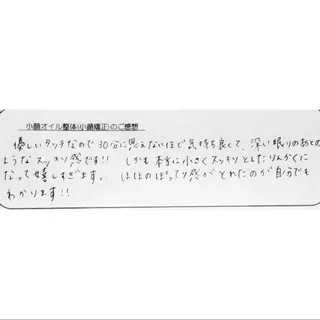 小顔オイル整体(小顔矯正)のご感想
優しいタッチなので30分に思えないほど気持ち良くて、深い眠りのあとの
ようなスッキリ感です!! しかも本当に小さくスッキリとしたりんかくに
なって嬉しすぎます。 ほほのぽってり感がとれたのが自分でも
わかります!!